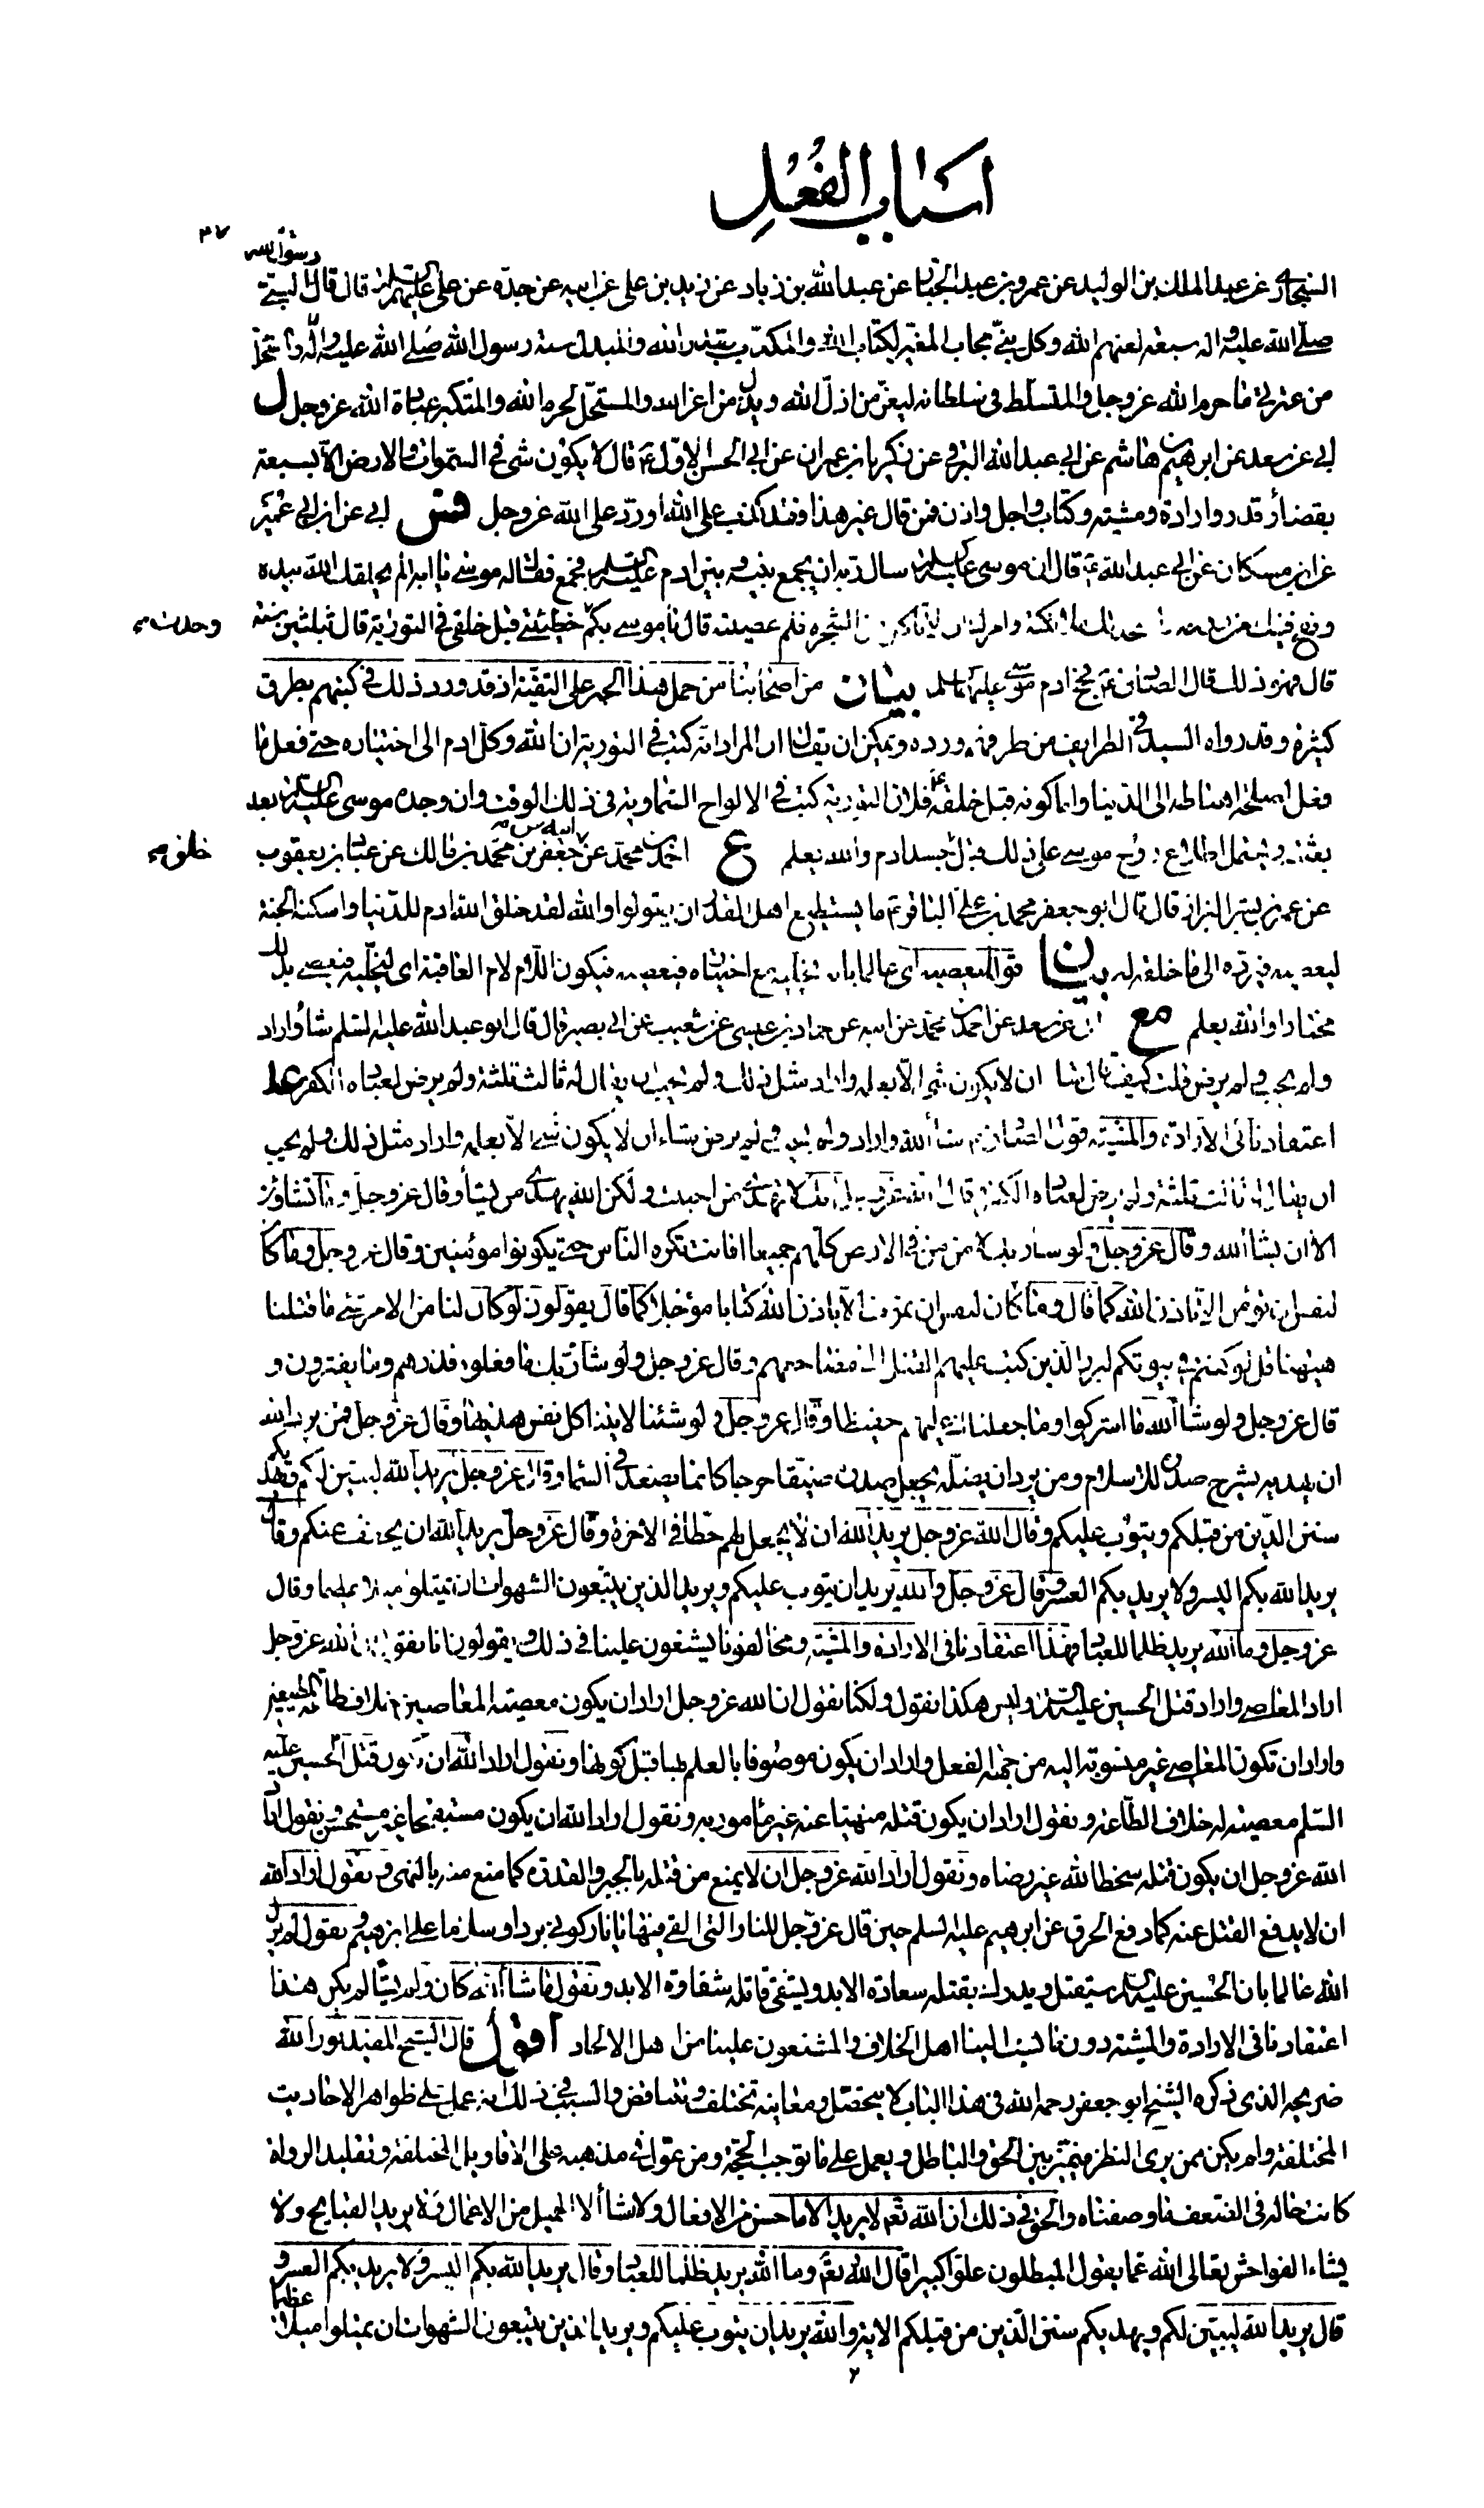 اسباب الفعل
٣٧
رسول الله
السجاد عن عبد الملك بن الوليد عن عمرو بن عبد الجبار عن عبد الله بن زياد عن زيد بن علي عن ابيه عن جده عن علي عليهم السلام قال قال
صلى الله عليه واله سبعة لعنهم الله وكل نبي مجاب المغير لكتاب الله والمكذب بقدر الله والمبدل سنة رسول الله صلى الله عليه واله والمستحل
من عترتي ما حرم الله عز وجل والمتسلط في سلطانه ليعز من اذل الله ويذل من اعز الله والمستحل لحرم الله والمتكبر عبادة الله عز وجل ل
ابي عن سعد عن ابرهيم بن هاشم عن ابي عبد الله البرقي عن زكريا بن عمران عن ابي الحسن الاول ع قال لا يكون شئ في السموات والارض الا بسبعة
بقضاء وقدر وارادة ومشية وكتاب واجل واذن فمن قال غير هذا فقد كذب على الله او رد على الله عز وجل فس ابي عن ابن ابي عمير
عن ابن مسكان عن ابي عبد الله ع قال ان موسى عليه السلم سال ربه ان يجمع بينه وبين ادم عليه السلم فجمع فقال له موسى يا ابه الم يخلقك الله بيده
ونفخ فيك من روحه وامرك ان لا تاكل من الشجرة فلم عصيته قال يا موسى بكم خطيئتي قبل خلقي في التورية قال بثلثين سنة
وجدت
قال فهو ذلك قال الصادق ع فحج ادم موسى عليهما السلم بيان من اصحابنا من حمل هذا الخبر على التقية اذ قد ورد ذلك في كتبهم بطرق
كثيرة وقد رواه السيد في الطرايف من طرقهم ورده ويمكن ان يقال ان المراد انه كتب في التورية ان الله وكل ادم الى اختياره حتى فعل ما
فعل لمصلحة اهباطه الى الدنيا واما كونه قبل خلقه ع فلان التورية كتبت في الالواح السماوية في ذلك الوقت وان وجده موسى عليه السلم بعد
بعثته ويحتمل اطلاع روح موسى على ذلك قبل جسد ادم والله يعلم ع احمد بن محمد عن جعفر بن محمد بن مالك عن عباد بن يعقوب
عن عمر بن بشر البزاز قال قال ابو جعفر محمد بن علي الباقر ع ما يستطيع اهل القدر ان يقولوا والله لقد خلق الله ادم للدنيا واسكنه الجنة
ليعصيه فيرده الى ما خلقه له بيان قوله ليعصيه اي عالما بانه يخليه مع اختياره فيعصيه فيكون اللام لام العاقبة اي ليخليه فيعصى بذلك
مختارا والله يعلم مع ابي عن سعد عن احمد بن محمد عن ابيه عن حماد بن عيسى عن شعيب عن ابي بصير قال قال ابو عبد الله عليه السلم شاء واراد
ولم يحب ولم يرض قلت كيف قال شاء ان لا يكون شئ الا بعلمه واراد مثل ذلك ولم يحب ان يقال له ثالث ثلثة ولم يرض لعباده الكفر عد
اعتقادنا في الارادة والمشية قول الصادق ع شاء الله واراد ولم يحب ولم يرض شاء ان لا يكون شئ الا بعلمه واراد مثل ذلك ولم يحب
ان يقال له ثالث ثلثة ولم يرض لعباده الكفر قال الله عز وجل انك لا تهدي من احببت ولكن الله يهدي من يشاء وقال عز وجل وما تشاؤن
الا ان يشاء الله وقال عز وجل ولو شاء ربك لامن من في الارض كلهم جميعا افانت تكره الناس حتى يكونوا مؤمنين وقال عز وجل وما كان
لنفس ان تؤمن الا باذن الله كما قال وما كان لنفس ان تموت الا باذن الله كتابا مؤجلا كما قال يقولون لو كان لنا من الامر شئ ما قتلنا
ههنا قل لو كنتم في بيوتكم لبرز الذين كتب عليهم القتل الى مضاجعهم وقال عز وجل ولو شاء ربك ما فعلوه فذرهم وما يفترون و
قال عز وجل ولو شاء الله ما اشركوا وما جعلناك عليهم حفيظا وقال عز وجل ولو شئنا لاتينا كل نفس هديها وقال عز وجل فمن يرد الله
ان يهديه يشرح صدره للاسلام ومن يرد ان يضله يجعل صدره ضيقا حرجا كانما يصعد في السماء وقال عز وجل يريد الله ليبين لكم ويهديكم
سنن الذين من قبلكم ويتوب عليكم وقال الله عز وجل يريد الله ان لا يجعل لهم حظا في الاخرة وقال عز وجل يريد الله ان يخفف عنكم وقال
يريد الله بكم اليسر ولا يريد بكم العسر وقال عز وجل والله يريد ان يتوب عليكم ويريد الذين يتبعون الشهوات ان تميلوا ميلا عظيما وقال
عز وجل وما الله يريد ظلما للعباد فهذا اعتقادنا في الارادة والمشية ومخالفونا يشنعون علينا في ذلك ويقولون انا نقول ان الله عز وجل
اراد المعاصي واراد قتل الحسين عليه السلم وليس هكذا نقول ولكنا نقول ان الله عز وجل اراد ان يكون معصية العاصين خلاف طاعة المطيعين
واراد ان تكون المعاصي غير منسوبة اليه من جهة الفعل واراد ان يكون موصوفا بالعلم بها قبل كونها ونقول اراد الله ان يكون قتل الحسين عليه
السلم معصية له خلاف الطاعة ونقول اراد ان يكون قتله منهيا عنه غير مامور به ونقول اراد الله ان يكون مستقبحا غير مستحسن ونقول اراد
الله عز وجل ان يكون قتله سخطا لله غير رضاه ونقول اراد الله عز وجل ان لا يمنع من قتله بالجبر والقدرة كما منع منه بالنهي ونقول اراد الله
ان لا يدفع القتل عنه كما دفع الحرق عن ابرهيم عليه السلم حين قال عز وجل للنار التي القي فيها يا نار كوني بردا وسلاما على ابرهيم ونقول لم يزل
الله عالما بان الحسين عليه السلم سيقتل ويدرك بقتله سعادة الابد ويشقى قاتله شقاوة الابد ونقول ما شاء الله كان وما لم يشا لم يكن هذا
اعتقادنا في الارادة والمشية دون ما نسب الينا اهل الخلاف والمشنعون علينا من اهل الالحاد اقول قال الشيخ المفيد نور الله
ضريحه الذي ذكره الشيخ ابو جعفر رحمه الله في هذا الباب لا يتحصل ومعانيه تختلف وتتناقض والسبب في ذلك انه عمل على ظواهر الاحاديث
المختلفة ولم يكن ممن يرى النظر فيميز بين الحق والباطل ويعمل على ما توجب الحجة ومن عول في مذهبه على الاقاويل المختلفة وتقليد الرواة
كانت حاله في الضعف ما وصفناه والحق في ذلك ان الله تعم لا يريد الا ما حسن من الافعال ولا يشاء الا الجميل من الاعمال ولا يريد القبايح ولا
يشاء الفواحش تعالى الله عما يقول المبطلون علوا كبيرا قال الله تعم وما الله يريد ظلما للعباد وقال يريد الله بكم اليسر ولا يريد بكم العسر و
قال يريد الله ليبين لكم ويهديكم سنن الذين من قبلكم الاية والله يريد ان يتوب عليكم ويريد الذين يتبعون الشهوات ان تميلوا ميلا عظيما
٢